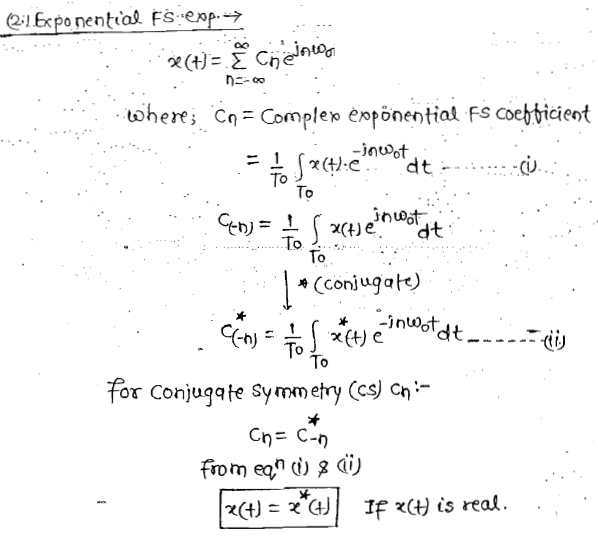 (2.) Exponential FS exp. →
x(t) = ∞ Σ n=-∞ Cn e^jnω0
where; Cn = Complex exponential FS coefficient
= 1/T0 ∫T0 x(t).e^-jnω0t dt ----------(i)
C(-n) = 1/T0 ∫T0 x(t) e^jnω0t dt
↓ * (conjugate)
C*(-n) = 1/T0 ∫T0 x*(t) e^-jnω0t dt ------(ii)
for conjugate symmetry (CS) Cn :-
Cn = C*-n
from eqn (i) & (ii)
x(t) = x*(t) If x(t) is real.